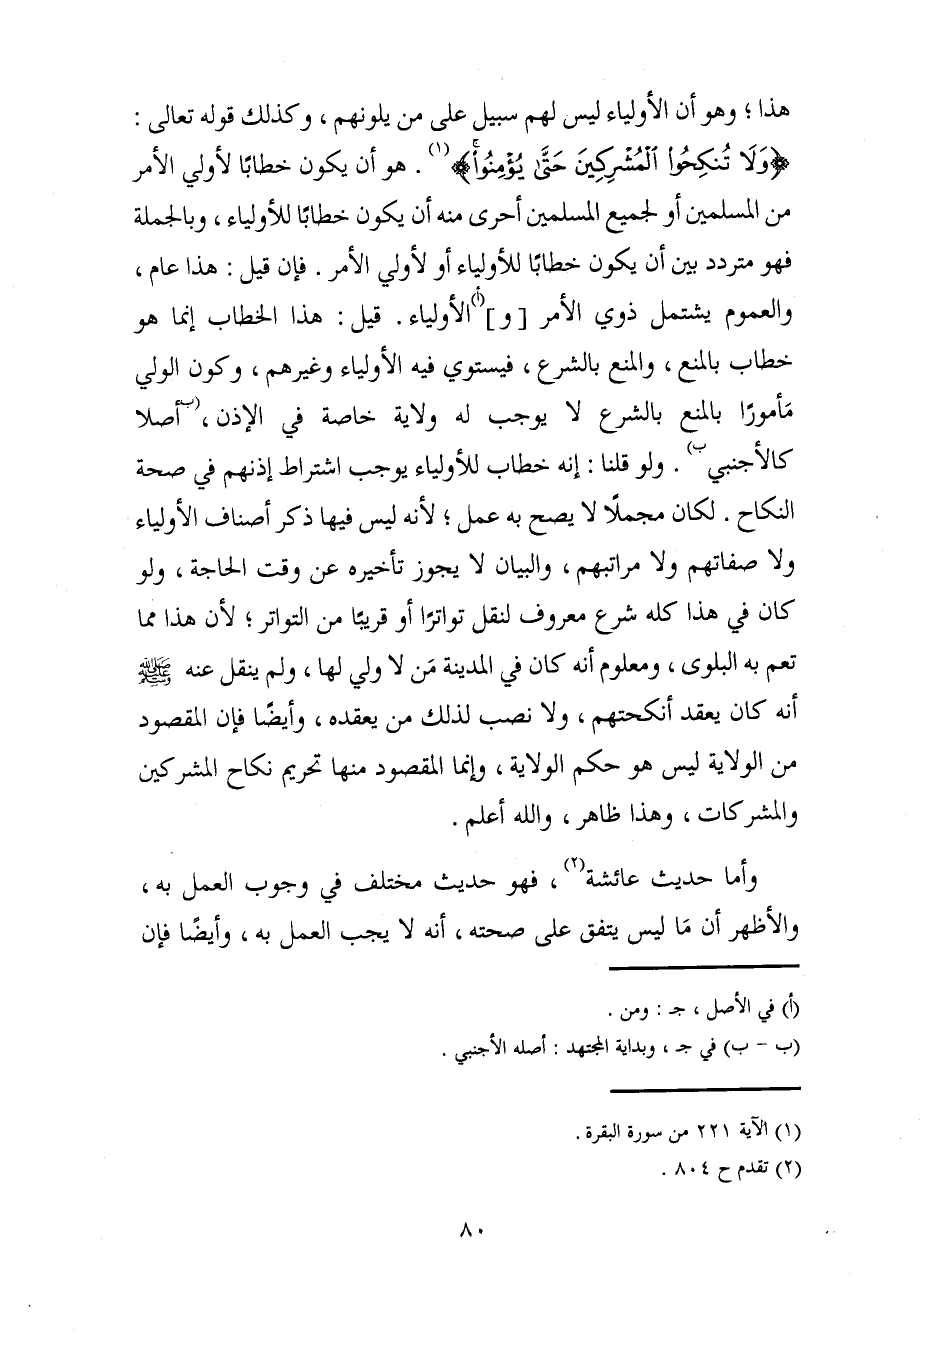 هذا ؛ وهو أن الأولياء ليس لهم سبيل على من يلونهم ، وكذلك قوله تعالى :
﴿وَلَا تُنكِحُوا۟ ٱلْمُشْرِكِينَ حَتَّىٰ يُؤْمِنُوا۟ۚ﴾(١) . هو أن يكون خطابًا لأولي الأمر
من المسلمين أو لجميع المسلمين أحرى منه أن يكون خطابًا للأولياء ، وبالجملة
فهو متردد بين أن يكون خطابًا للأولياء أو لأولي الأمر . فإن قيل : هذا عام ،
والعموم يشتمل ذوي الأمر [ و ](أ) الأولياء . قيل : هذا الخطاب إنما هو
خطاب بالمنع ، والمنع بالشرع ، فيستوي فيه الأولياء وغيرهم ، وكون الولي
مَأمورًا بالمنع بالشرع لا يوجب له ولاية خاصة في الإذن ، (ب أصلا
كالأجنبي ب) . ولو قلنا : إنه خطاب للأولياء يوجب اشتراط إذنهم في صحة
النكاح . لكان مجملًا لا يصح به عمل ؛ لأنه ليس فيها ذكر أصناف الأولياء
ولا صفاتهم ولا مراتبهم ، والبيان لا يجوز تأخيره عن وقت الحاجة ، ولو
كان في هذا كله شرع معروف لنقل تواترًا أو قريبًا من التواتر ؛ لأن هذا مما
تعم به البلوى ، ومعلوم أنه كان في المدينة مَن لا ولي لها ، ولم ينقل عنه ﷺ
أنه كان يعقد أنكحتهم ، ولا نصب لذلك من يعقده ، وأيضًا فإن المقصود
من الولاية ليس هو حكم الولاية ، وإنما المقصود منها تحريم نكاح المشركين
والمشركات ، وهذا ظاهر ، والله أعلم .
وأما حديث عائشة(٢) ، فهو حديث مختلف في وجوب العمل به ،
والأظهر أن مَا ليس يتفق على صحته ، أنه لا يجب العمل به ، وأيضًا فإن
(أ) في الأصل ، جـ : ومن .
(ب - ب) في جـ ، وبداية المجتهد : أصله الأجنبي .
(١) الآية ٢٢١ من سورة البقرة .
(٢) تقدم ح ٨٠٤ .
٨٠